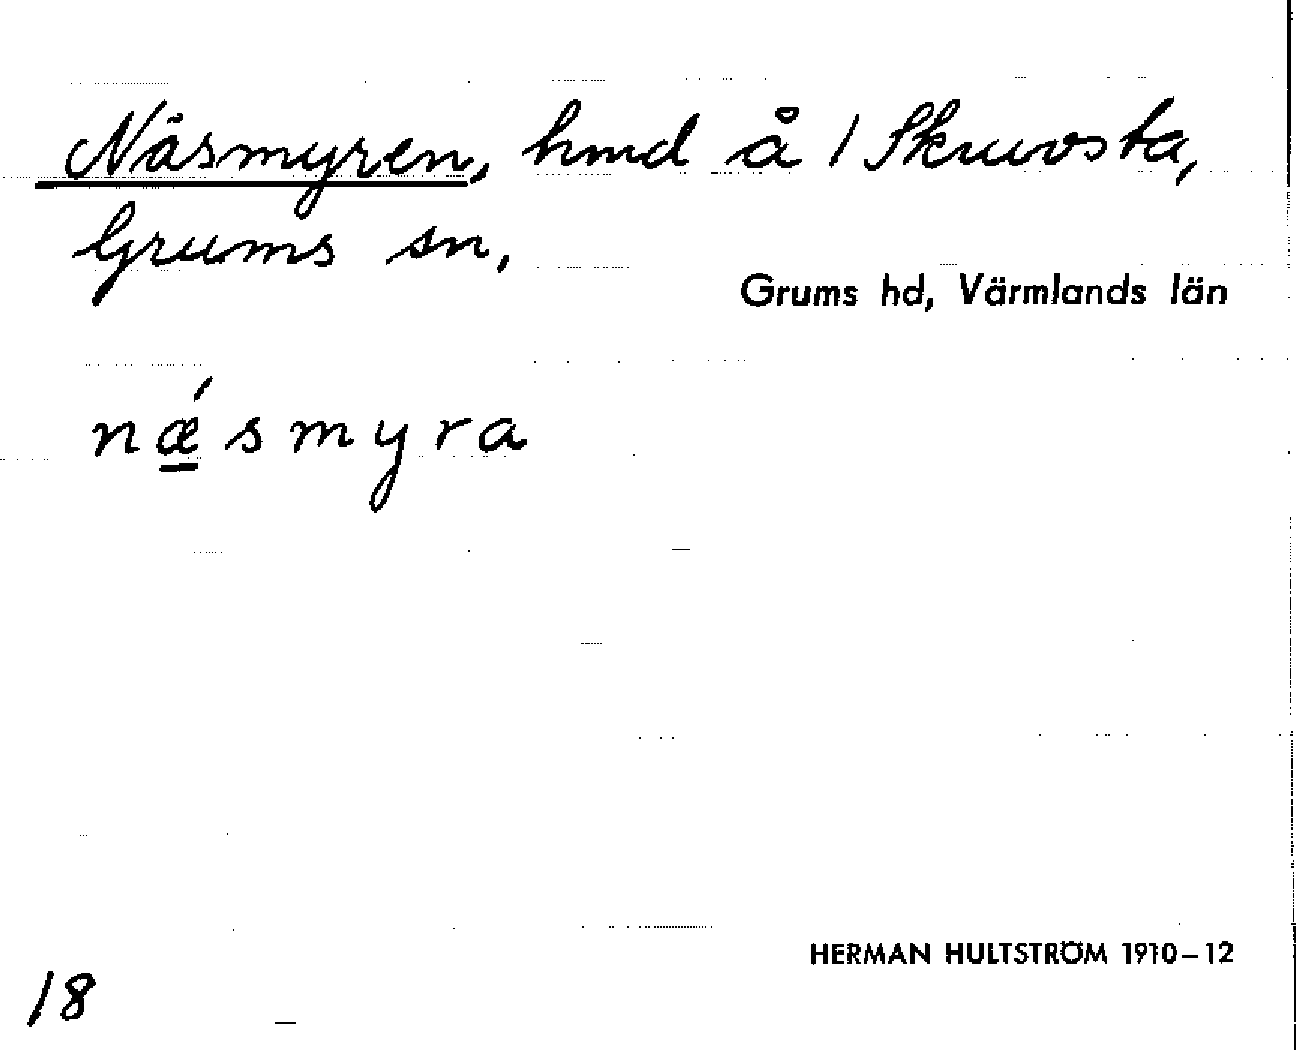 Näsmyren, hmd å 1 Skruvsta,
Grums sn,
Grums hd, Värmlands län
nǽ̲smyra
HERMAN HULTSTRÖM 1910–12
18